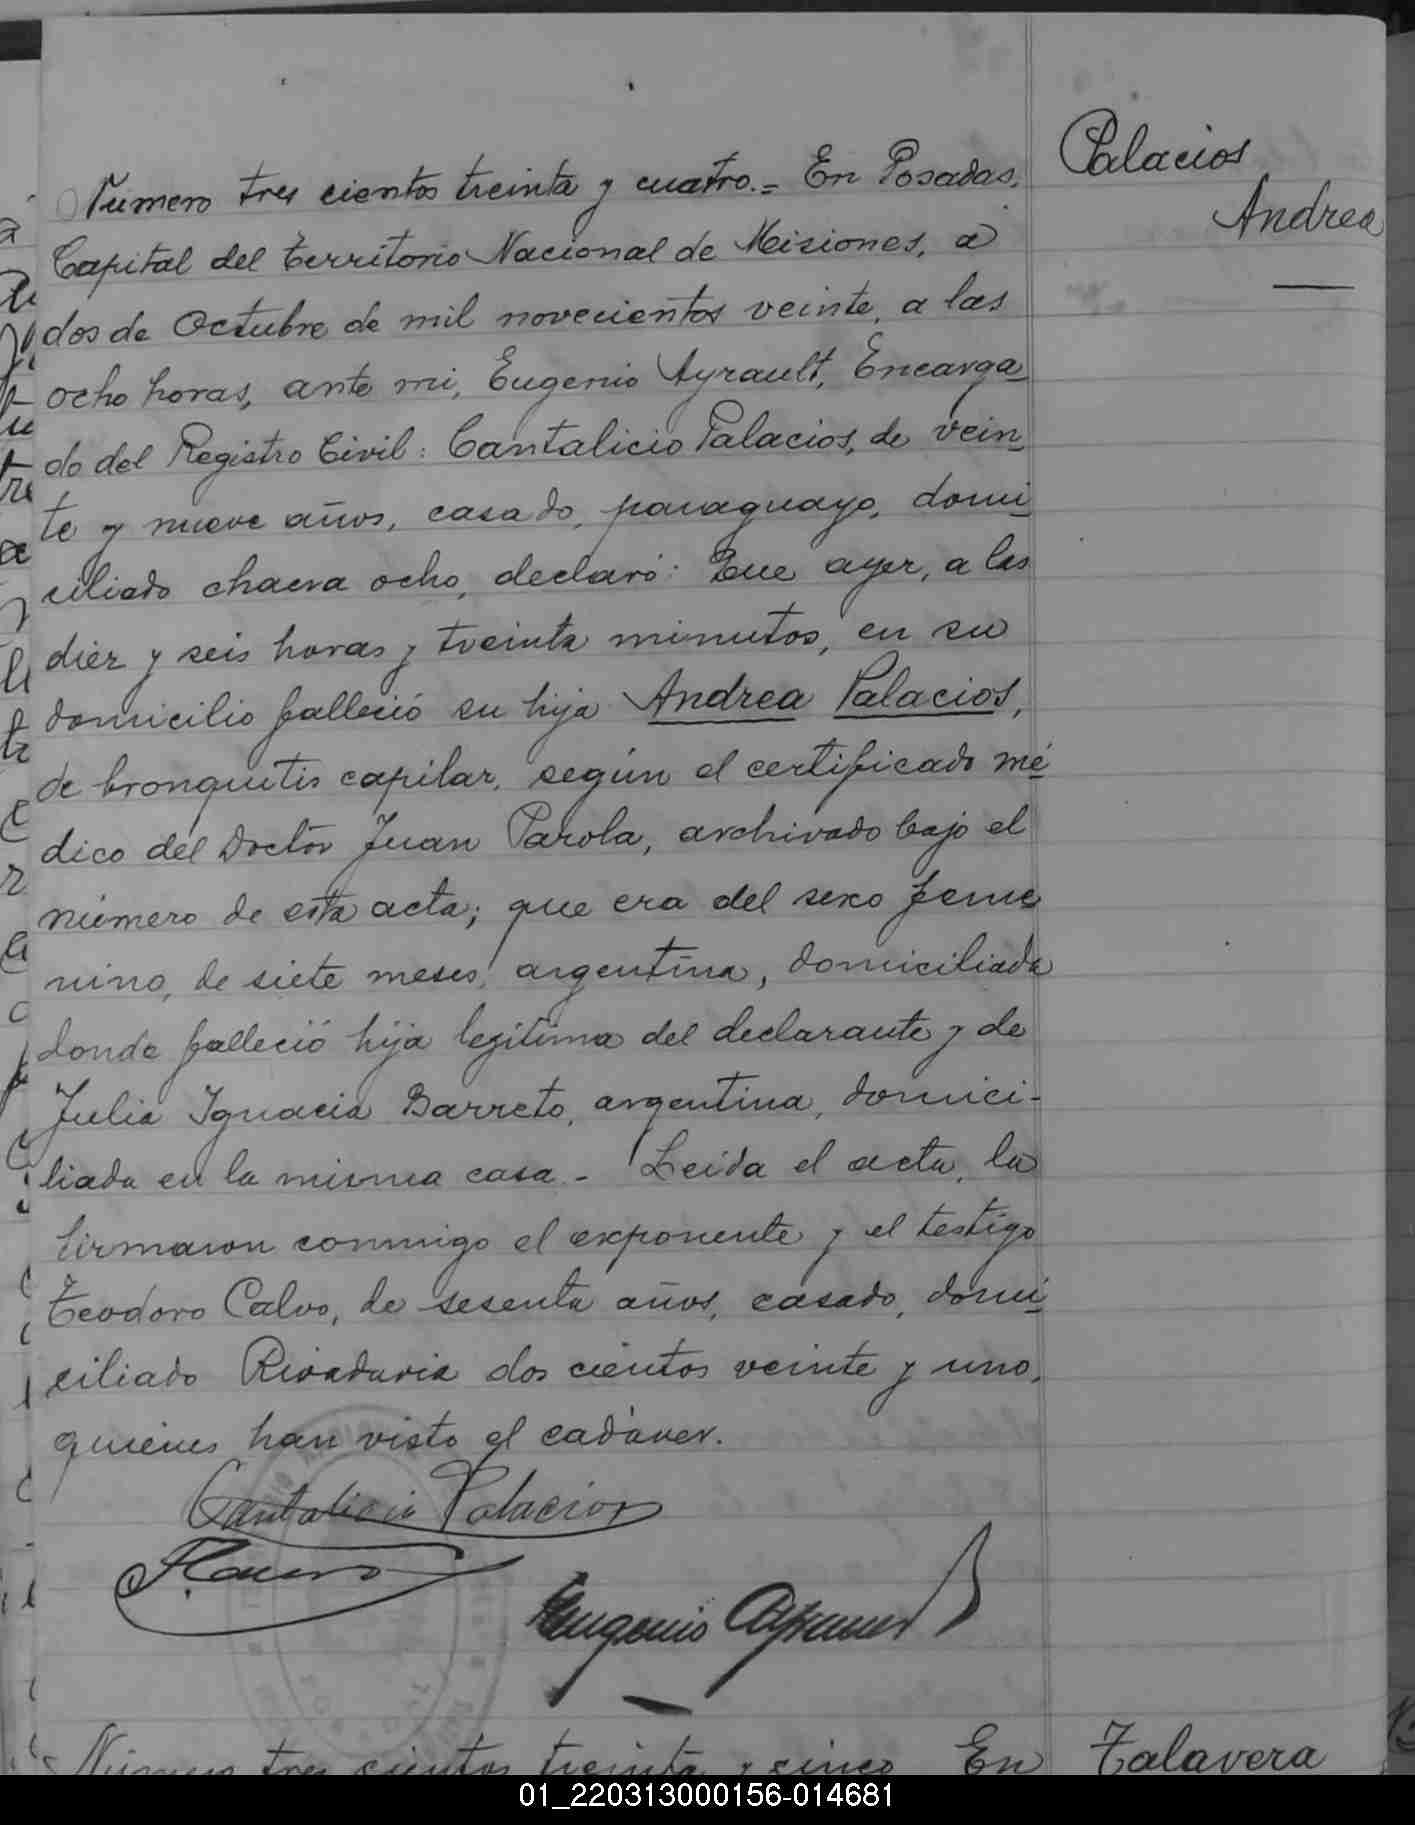 Palacios
Andrea
Número tres cientos treinta y cuatro.= En Posadas,
Capital del territorio Nacional de Misiones, a
dos de Octubre de mil novecientos veinte, a las
ocho horas, ante mi, Eugenio Ayrault, Encarga
do del Registro Civil: Cantalicio Palacios, de vein
te y nueve años, casado, paraguayo, domi
ciliado chacra ocho, declaró: Que ayer, a las
diez y seis horas y treinta minutos, en su
domicilio falleció su hija Andrea Palacios,
de bronquitis capilar, según el certificado mé
dico del Doctor Juan Parola, archivado bajo el
número de esta acta; que era del sexo feme
nino, de siete meses, argentina, domiciliada
donde falleció hija legitima del declarante y de
Julia Ignacia Barreto, argentina, domici-
liada en la misma casa.- Leida el acta, la
firmaron conmigo el exponente y el testigo
Teodoro Calvo, de sesenta años, casado, domi
ciliado Rivadavia dos cientos veinte y uno,
quienes han visto el cadáver.
Cantalicio Palacios
Eugenio Ayrault
Número tres cientos treinta y cinco En
Talavera
01_220313000156-014681